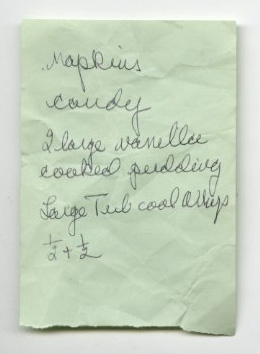 Napkins
candy
2 large vanilla
cooked pudding
Large Tub cool whip
½ + ½